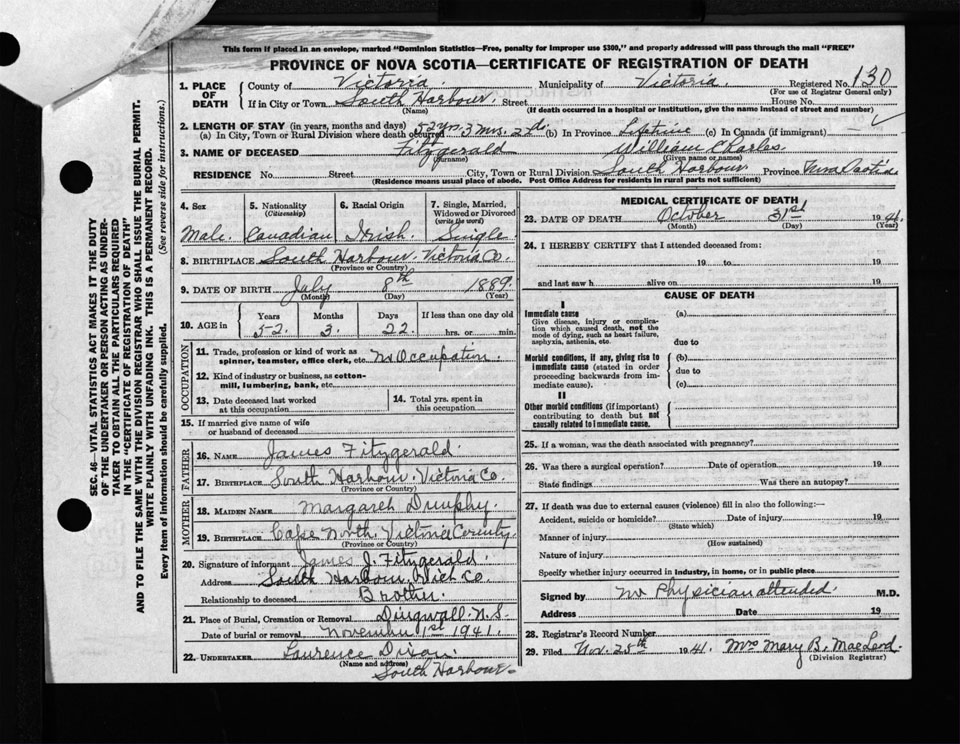 This form if placed in an envelope, marked "Dominion Statistics—Free, penalty for improper use $300," and properly addressed will pass through the mail "FREE"
PROVINCE OF NOVA SCOTIA—CERTIFICATE OF REGISTRATION OF DEATH
SEC. 46—VITAL STATISTICS ACT MAKES IT THE DUTY
OF THE UNDERTAKER OR PERSON ACTING AS UNDER-
TAKER TO OBTAIN ALL THE PARTICULARS REQUIRED
IN THE "CERTIFICATE OF REGISTRATION OF DEATH"
AND TO FILE THE SAME WITH THE DIVISION REGISTRAR WHO SHALL ISSUE THE BURIAL PERMIT.
WRITE PLAINLY WITH UNFADING INK. THIS IS A PERMANENT RECORD.
Every item of information should be carefully supplied. (See reverse side for instructions.)
1. PLACE OF DEATH County of Victoria. Municipality of Victoria. Registered No. 130
(For use of Registrar General only)
If in City or Town South Harbour. Street House No.
(Name) (If death occurred in a hospital or institution, give the name instead of street and number)
2. LENGTH OF STAY (in years, months and days)
(a) In City, Town or Rural Division where death occurred 52 yrs. 3 mrs. 2 ds (b) In Province Lifetime (c) In Canada (if immigrant)
3. NAME OF DECEASED Fitzgerald William Charles.
(Surname) (Given name or names)
RESIDENCE No. Street City, Town or Rural Division South Harbour Province Nova Scotia
(Residence means usual place of abode. Post Office Address for residents in rural parts not sufficient)
4. Sex Male.
5. Nationality (Citizenship) Canadian
6. Racial Origin Irish.
7. Single, Married, Widowed or Divorced (write the word) Single
8. BIRTHPLACE South Harbour. Victoria Co.
(Province or Country)
9. DATE OF BIRTH July 8th 1889.
(Month) (Day) (Year)
10. AGE in Years Months Days If less than one day old
52. 3. 22. hrs. or min.
OCCUPATION
11. Trade, profession or kind of work as
spinner, teamster, office clerk, etc. No Occupation.
12. Kind of industry or business, as cotton-
mill, lumbering, bank, etc.
13. Date deceased last worked
at this occupation
14. Total yrs. spent in
this occupation
15. If married give name of wife
or husband of deceased
FATHER
16. NAME James Fitzgerald.
17. BIRTHPLACE South Harbour. Victoria Co.
(Province or Country)
MOTHER
18. MAIDEN NAME Margaret Dunphy.
19. BIRTHPLACE Cape North. Victoria County.
(Province or Country)
20. Signature of informant James J. Fitzgerald.
Address South Harbour, Vict Co.
Relationship to deceased Brother.
21. Place of Burial, Cremation or Removal Dingwall. N.S.
Date of burial or removal November 1st 1941.
22. UNDERTAKER Laurence Dixon.
(Name and address)
South Harbour.
MEDICAL CERTIFICATE OF DEATH
23. DATE OF DEATH October 31st 1941.
(Month) (Day) (Year)
24. I HEREBY CERTIFY that I attended deceased from:
19 to 19
and last saw h alive on 19
CAUSE OF DEATH
I
Immediate cause
Give disease, injury or complica-
tion which caused death, not the
mode of dying, such as heart failure,
asphyxia, asthenia, etc.
(a)
due to
Morbid conditions, if any, giving rise to
immediate cause (stated in order
proceeding backwards from im-
mediate cause).
(b)
due to
(c)
II
Other morbid conditions (if important)
contributing to death but not
causally related to immediate cause.
25. If a woman, was the death associated with pregnancy?
26. Was there a surgical operation? Date of operation 19
State findings Was there an autopsy?
27. If death was due to external causes (violence) fill in also the following:—
Accident, suicide or homicide? Date of injury 19
(State which)
Manner of injury
(How sustained)
Nature of injury
Specify whether injury occurred in industry, in home, or in public place
Signed by No Physician attended. M.D.
Address Date 19
28. Registrar's Record Number
29. Filed Nov. 25th 1941. Mrs Mary B. MacLeod.
(Division Registrar)